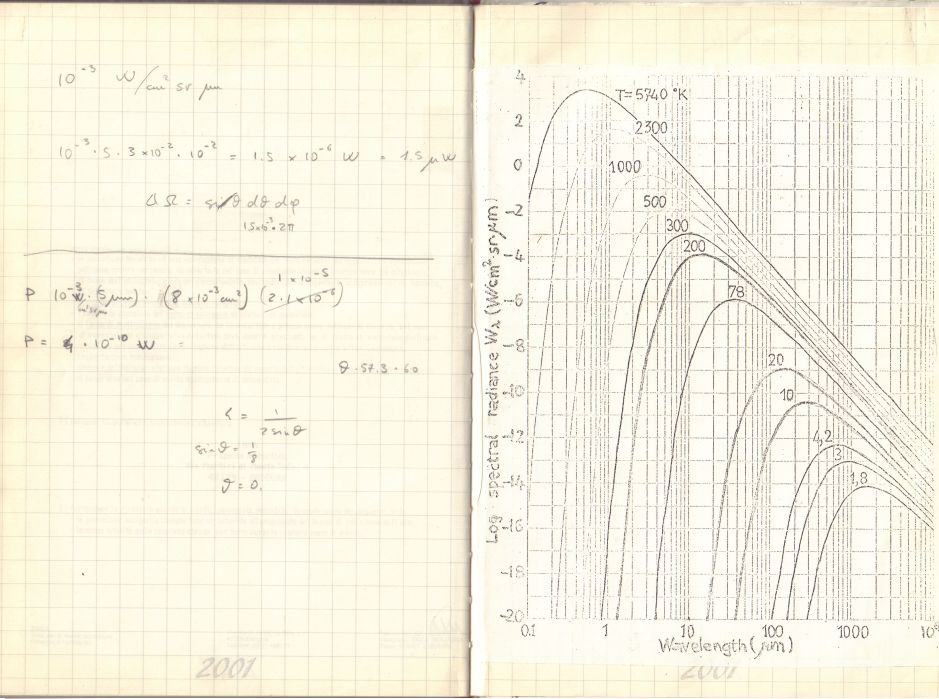 10⁻³ W/cm² sr μm
10⁻³ · 5 · 3 × 10⁻² · 10⁻² = 1.5 × 10⁻⁶ W = 1.5 μW
ΔΩ = sinϑ dϑ dφ
1.5×10⁻³ · 2π
1 × 10⁻⁵
P 10⁻³ W · (5 μm) · (8 × 10⁻³ cm²) (2 · 1 × 10⁻⁶)
cm² sr μm
P = 4 · 10⁻¹⁰ W =
ϑ · 57.3 · 60
= 1/2 sinϑ
sinϑ = 1/8
ϑ = 0.
2001
4
T=5740 °K
2
2300
0
1000
-2
500
300
-4
200
-6
78
-8
20
-10
10
-12
4,2
3
-14
1,8
-16
-18
-20
Log spectral radiance Wλ (W/cm²·sr·μm)
0.1 1 10 100 1000 10⁴
Wavelength (μm)
2001